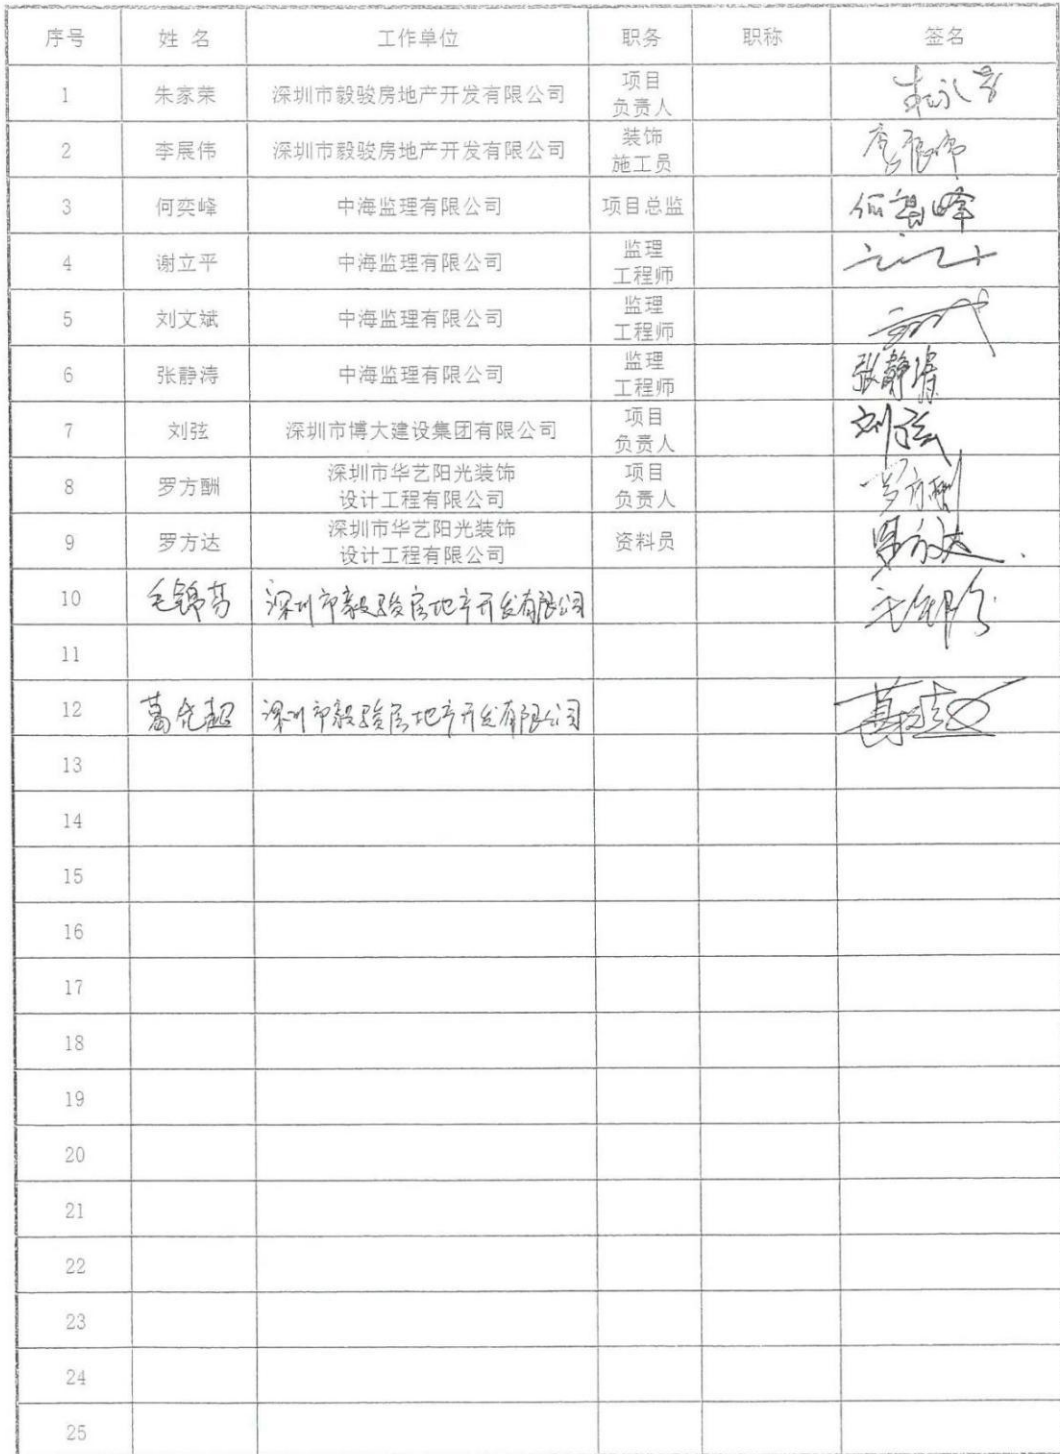 序号 姓 名 工作单位 职务 职称 签名
1 朱家荣 深圳市毅骏房地产开发有限公司 项目
负责人
2 李展伟 深圳市毅骏房地产开发有限公司 装饰
施工员
3 何奕峰 中海监理有限公司 项目总监
4 谢立平 中海监理有限公司 监理
工程师
5 刘文斌 中海监理有限公司 监理
工程师
6 张静涛 中海监理有限公司 监理
工程师 张静涛
7 刘弦 深圳市博大建设集团有限公司 项目
负责人 刘弦
8 罗方酬 深圳市华艺阳光装饰
设计工程有限公司 项目
负责人 罗方酬
9 罗方达 深圳市华艺阳光装饰
设计工程有限公司 资料员 罗方达
10 深圳市毅骏房地产开发有限公司
11
12 深圳市毅骏房地产开发有限公司
13
14
15
16
17
18
19
20
21
22
23
24
25